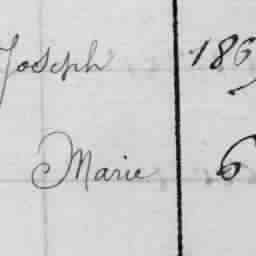 Joseph 186
Marie 6